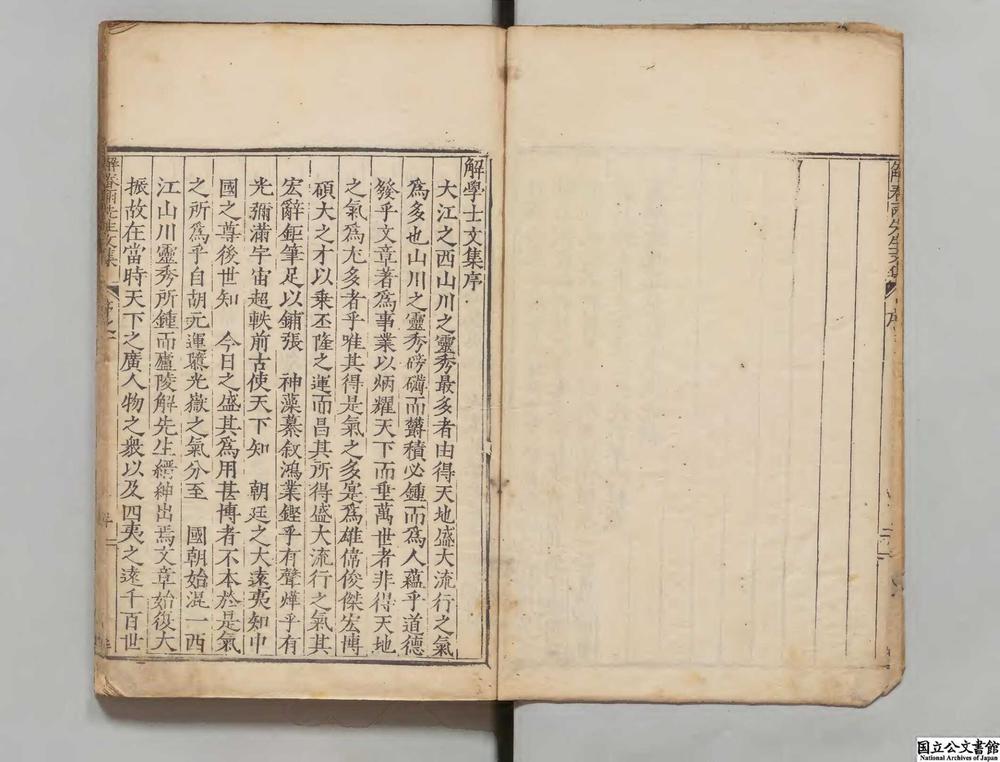 解學士文集序
大江之西山川之靈秀最多者由得天地盛大流行之氣
爲多也山川之靈秀磅礴而欝積必鍾而爲人蘊乎道德
發乎文章著爲事業以炳耀天下而垂萬世者非得天地
之氣爲尤多者乎唯其得是氣之多寔爲雄偉俊傑宏博
碩大之才以乘丕隆之運而昌其所得盛大流行之氣其
宏辭鉅筆足以鋪張 神藻纂叙鴻業鏗乎有聲燁乎有
光彌滿宇宙超軼前古使天下知 朝廷之大遠夷知中
國之尊後世知 今日之盛其爲用甚博者不本於是氣
之所爲乎自胡元運隳光嶽之氣分至 國朝始混一西
江山川靈秀所鍾而廬陵解先生縉紳出焉文章始復大
振故在當時天下之廣人物之衆以及四夷之遠千百世
解春雨先生文集 序
国立公文書館
National Archives of Japan